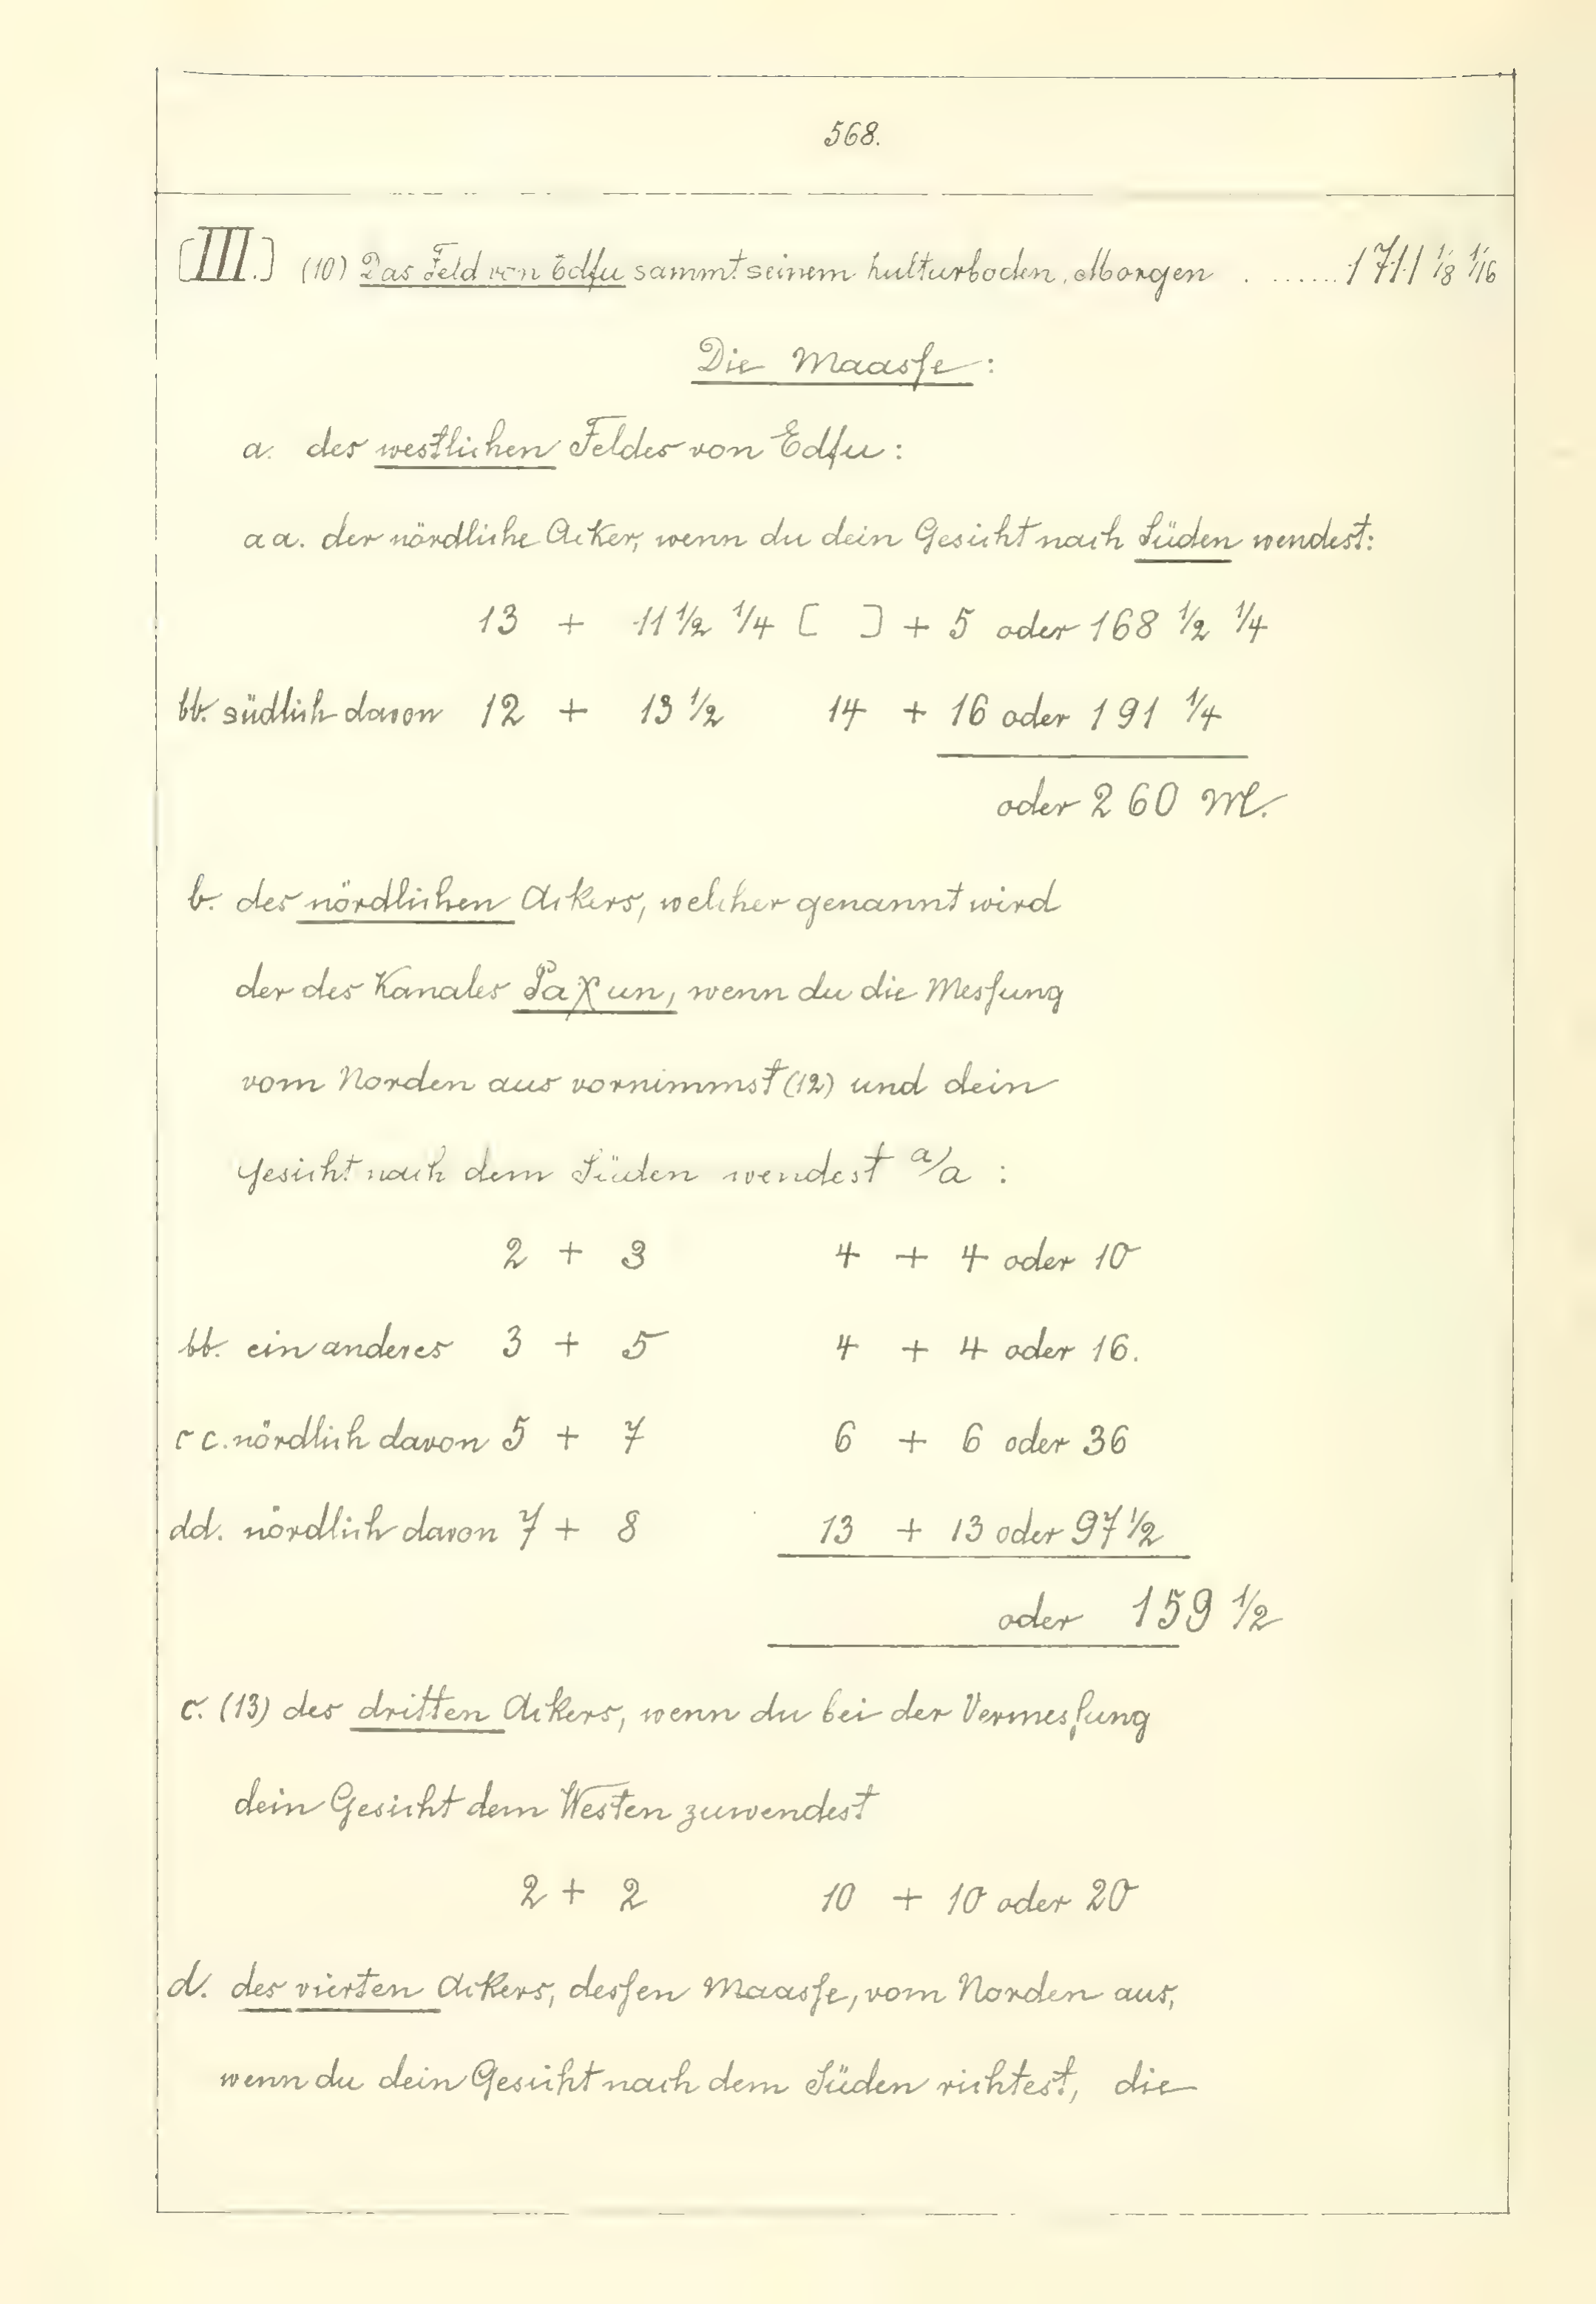 568.
[III.] (10) Das Feld von Edfu sammt seinem Kulturboden, Morgen . ...... 1711 1/8 1/16
Die Maasse :
a. des westlichen Feldes von Edfu :
aa. der nördliche Acker, wenn du dein Gesicht nach Süden wendest:
13 + 11 1/2 1/4 [ ] + 5 oder 168 1/2 1/4
bb. südlich davon 12 + 13 1/2 14 + 16 oder 191 1/4
oder 260 M.
b. des nördlichen Ackers, welcher genannt wird
der des Kanales Paχun, wenn du die Messung
vom Norden aus vornimmst (12) und dein
Gesicht nach dem Süden wendest a/a :
2 + 3 4 + 4 oder 10
bb. ein anderes 3 + 5 4 + 4 oder 16.
cc. nördlich davon 5 + 7 6 + 6 oder 36
dd. nördlich davon 7 + 8 13 + 13 oder 97 1/2
oder 159 1/2
c. (13) des dritten Ackers, wenn du bei der Vermessung
dein Gesicht dem Westen zuwendest
2 + 2 10 + 10 oder 20
d. des vierten Ackers, dessen Maasse, vom Norden aus,
wenn du dein Gesicht nach dem Süden richtest, die